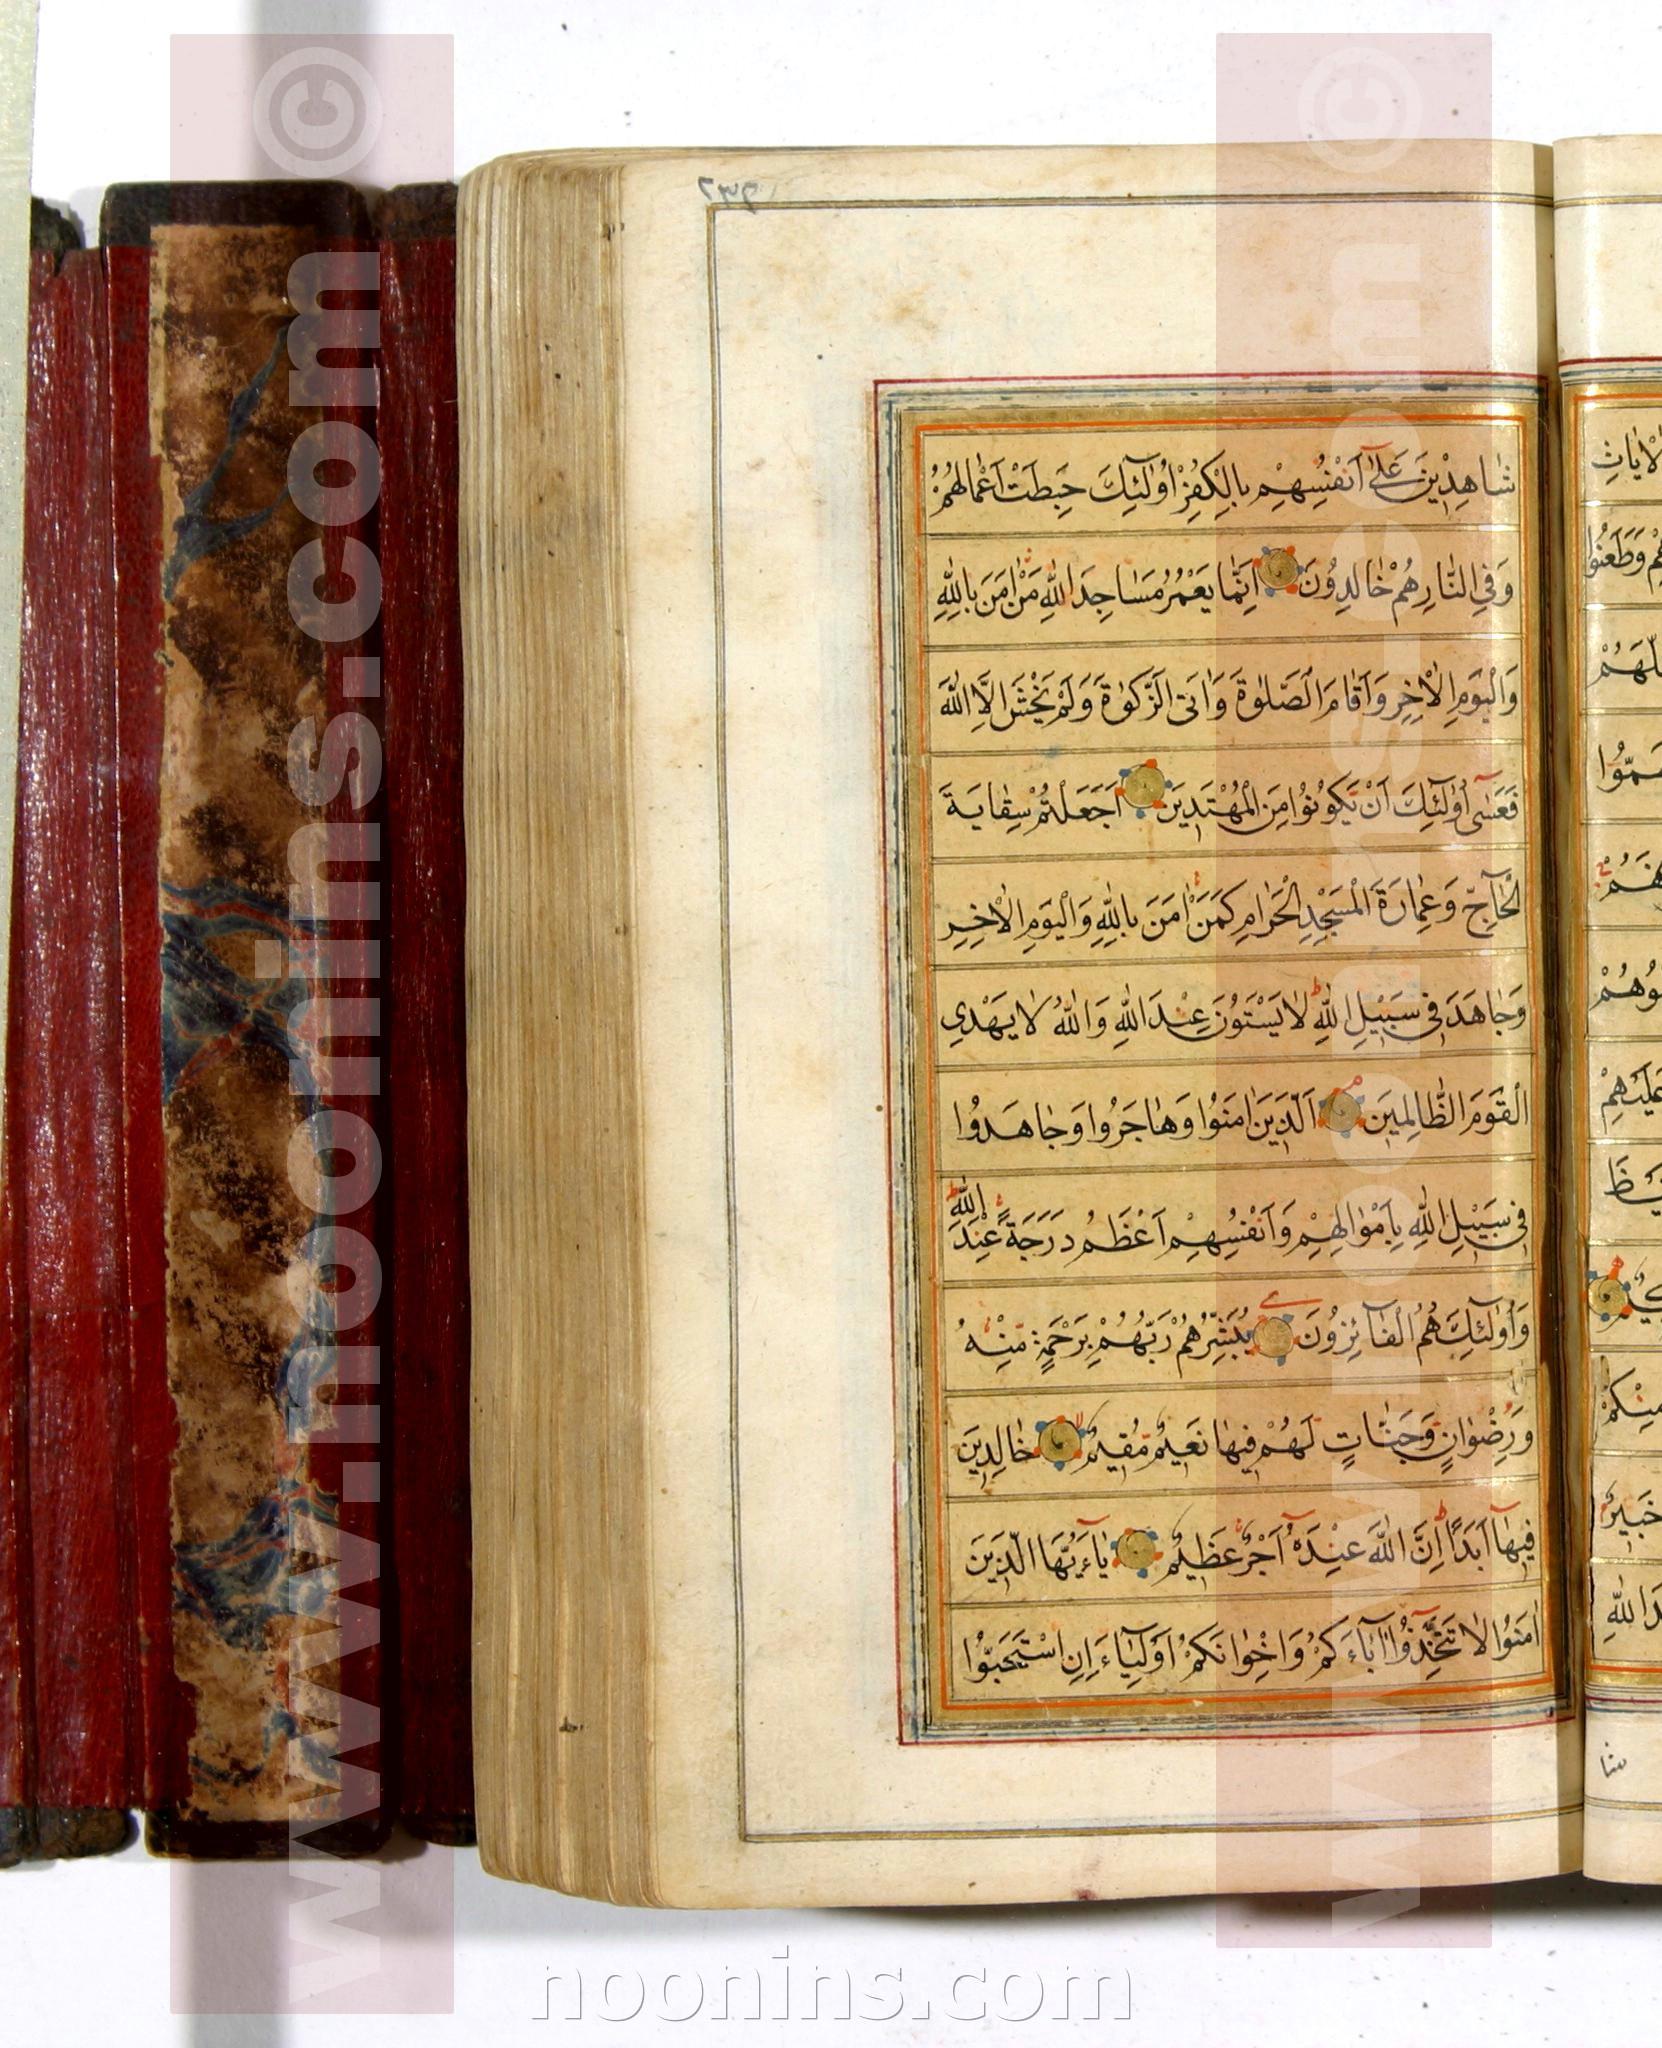 شَاهِدِينَ عَلَىٰ أَنْفُسِهِمْ بِالْكُفْرِ أُولَٰئِكَ حَبِطَتْ أَعْمَالُهُمْ
وَفِي النَّارِ هُمْ خَالِدُونَ إِنَّمَا يَعْمُرُ مَسَاجِدَ اللَّهِ مَنْ آمَنَ بِاللَّهِ
وَالْيَوْمِ الْآخِرِ وَأَقَامَ الصَّلَوٰةَ وَآتَى الزَّكَوٰةَ وَلَمْ يَخْشَ إِلَّا اللَّهَ
فَعَسَىٰ أُولَٰئِكَ أَنْ يَكُونُوا مِنَ الْمُهْتَدِينَ أَجَعَلْتُمْ سِقَايَةَ
الْحَاجِّ وَعِمَارَةَ الْمَسْجِدِ الْحَرَامِ كَمَنْ آمَنَ بِاللَّهِ وَالْيَوْمِ الْآخِرِ
وَجَاهَدَ فِي سَبِيلِ اللَّهِ لَا يَسْتَوُونَ عِنْدَ اللَّهِ وَاللَّهُ لَا يَهْدِي
الْقَوْمَ الظَّالِمِينَ الَّذِينَ آمَنُوا وَهَاجَرُوا وَجَاهَدُوا
فِي سَبِيلِ اللَّهِ بِأَمْوَالِهِمْ وَأَنْفُسِهِمْ أَعْظَمُ دَرَجَةً عِنْدَ اللَّهِ
وَأُولَٰئِكَ هُمُ الْفَائِزُونَ يُبَشِّرُهُمْ رَبُّهُمْ بِرَحْمَةٍ مِنْهُ
وَرِضْوَانٍ وَجَنَّاتٍ لَهُمْ فِيهَا نَعِيمٌ مُقِيمٌ خَالِدِينَ
فِيهَا أَبَدًا إِنَّ اللَّهَ عِنْدَهُ أَجْرٌ عَظِيمٌ يَا أَيُّهَا الَّذِينَ
آمَنُوا لَا تَتَّخِذُوا آبَاءَكُمْ وَإِخْوَانَكُمْ أَوْلِيَاءَ إِنِ اسْتَحَبُّوا
وَطَعَنُوا
عَلَيْهِمْ
مِنْكُمْ
خَبِيرٌ
اللَّهِ
شا
www.noonins.com ©
www.noonins.com ©
noonins.com